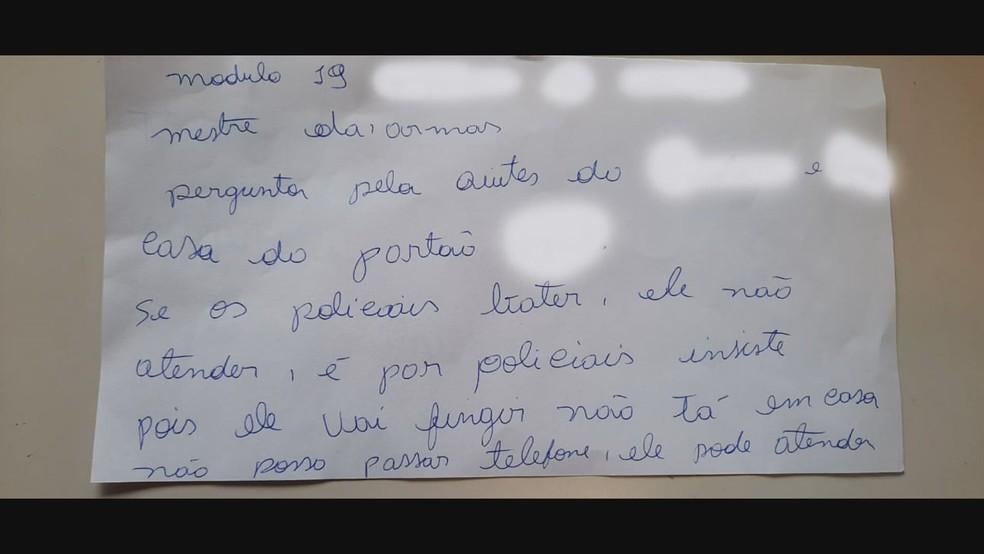 modulo 19
mestre da, armas
pergunta pela antes do e
casa do portão
se os policiais bater, ele não
atender, é por policiais insiste
pois ele vai fingir não tá em casa
não posso passar telefone, ele pode atender